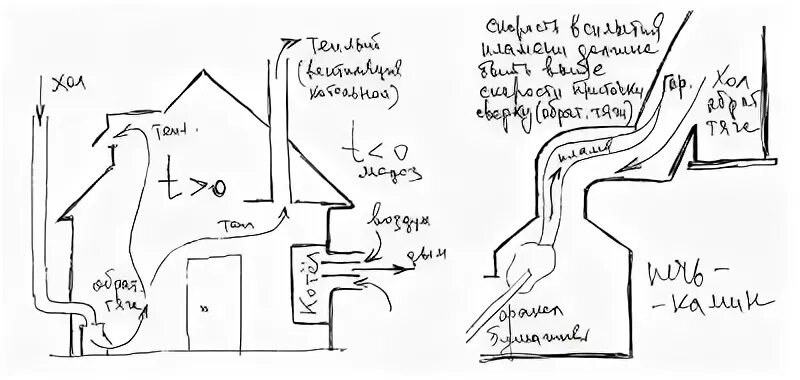 хол
Тепл.
t>0
обрат.
тяга
Теп
Теплый
(вентиляция
котельной)
t<0
мороз
воздух
дым
Котёл
скорость всплытия
пламени должна
быть выше
скорости приточки
сверху (обрат. тяги)
Гор.
хол
обрат
тяга
пламя
факел
бумажный
печь-
-камин